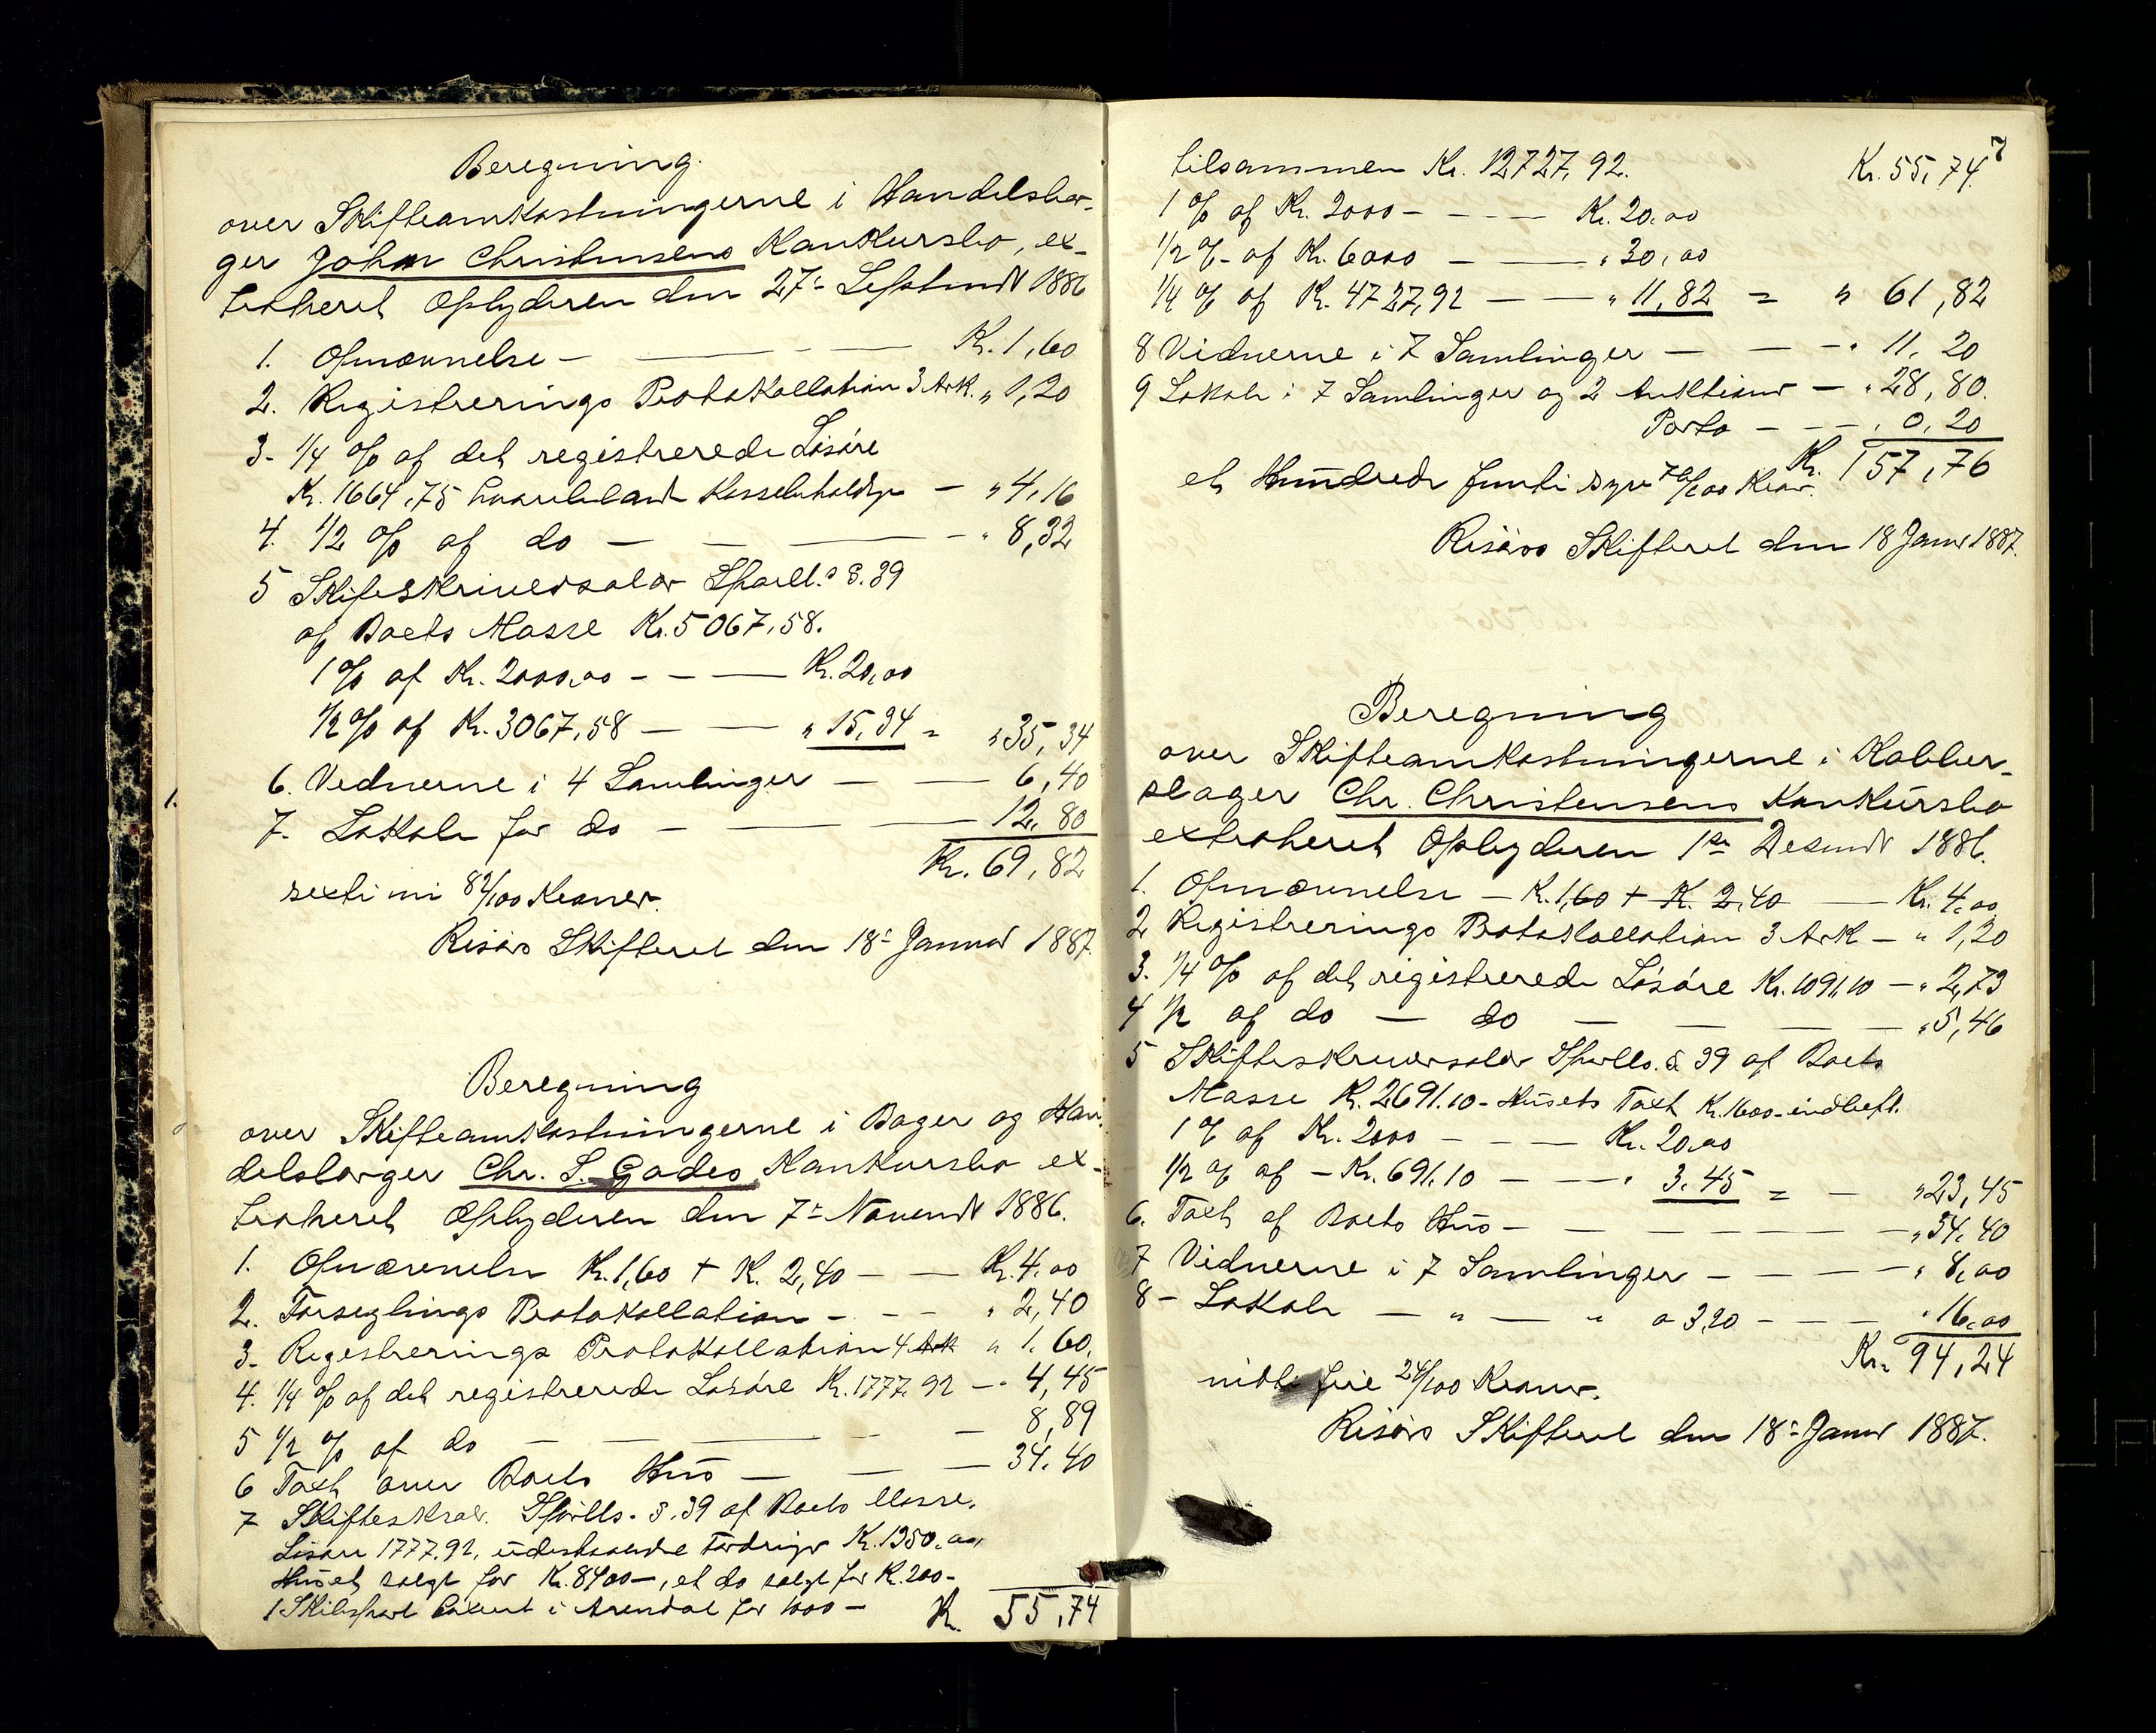 Beregning
over Skifteomkostningerne i Handelsbor-
ger John Christensens Konkursbo, ex-
traheret Opbyderen den 27de Septembr 1886
1. Opnævnelse — Kr. 1,60
2. Registrerings Protokollation 3 Ark. " 1,20
3. 1/4 % af det registrerede Løsøre
Kr. 1664,75 — " 4,16
4. 1/2 % af do — " 8,32
5 Skifteskriversalær Sportl. § 39
af Boets Masse Kr. 5067,58.
1 % af Kr. 2000,00 - - — Kr. 20,00
1/2 % af Kr. 3067,58 — — " 15,34 = " 35,34
6. Vidnerne i 4 Samlinger — — 6,40
7. Lokale for do — — 12,80
Kr. 69,82
sexti ni 82/100 Kroner.
Risørs Skifteret den 18de Januar 1887.
Beregning
over Skifteomkostningerne i Bager og Han-
delsborger Chr. S. Gades Konkursbo ex-
traheret Opbyderen den 7de Novembr 1886.
1. Opnævnelse Kr. 1,60 + K. 2,40 — — Kr. 4,00
2. Forseglings Protokollation - - — " 2,40
3. Registrerings Protokollation 4 Ark " 1,60,
4. 1/4 % af det registrerede Løsøre Kr. 1777,92 — " 4,45
5 1/2 % af do — — — — 8,89
6 Taxt over Boets Hus — — — 34,40
7 Skifteskrsal. Sportls. § 39 af Boets Masse,
Løsøre 1777.92, udestaaende Fordringer Kr. 1350,00,
Huset solgt for Kr. 8400—, et do solgt for K. 200-
1 Skibspart taxeret i Arendal for 1000 —
Kr. 55,74
7
tilsammen Kr. 12727,92. Kr. 55,74.
1 % af Kr. 2000 - - - — Kr. 20,00
1/2 % af Kr. 6000 — — " 30,00
1/4 % af Kr. 4727,92 — — " 11,82 = " 61,82
8 Vidnerne i 7 Samlinger — — - " 11,20
9 Lokale i 7 Samlinger og 2 Auktioner — " 28,80.
Porto - - — " 0,20
et Hundrede femti syv 76/100 Kroner. Kr. 157,76
Risørs Skifteret den 18 Januar 1887.
Beregning
over Skifteomkostningerne i Kobber-
slager Chr. Christensens Konkursbo
extraheret Opbyderen 1ste Decembr 1886.
1. Opnævnelse — K. 1,60 + K. 2,40 — Kr. 4,00
2 Registrerings Protokollation 3 Ark — " 1,20
3. 1/4 % af det registrerede Løsøre Kr. 1091,10 — " 2,73
4 1/2 af do — do — — — — " 5,46
5 Skifteskriversalær Sportls. § 39 af Boets
Masse K. 2691.10 - Husets Taxt Kr. 1600 - indbeft.
1 % af Kr. 2000 - - - — Kr. 20,00
1/2 % af — Kr. 691.10 — — " 3.45 = — " 23,45
6. Taxt af Boets Hus — — — — " 34,40
7 Vidnerne i 7 Samlinger — — — — " 8,00
8 - Lokale — " — " a 3,20 - - — — " 16,00
Kr. 94,24
nitti fire 24/100 Kroner.
Risørs Skifteret den 18de Januar 1887.